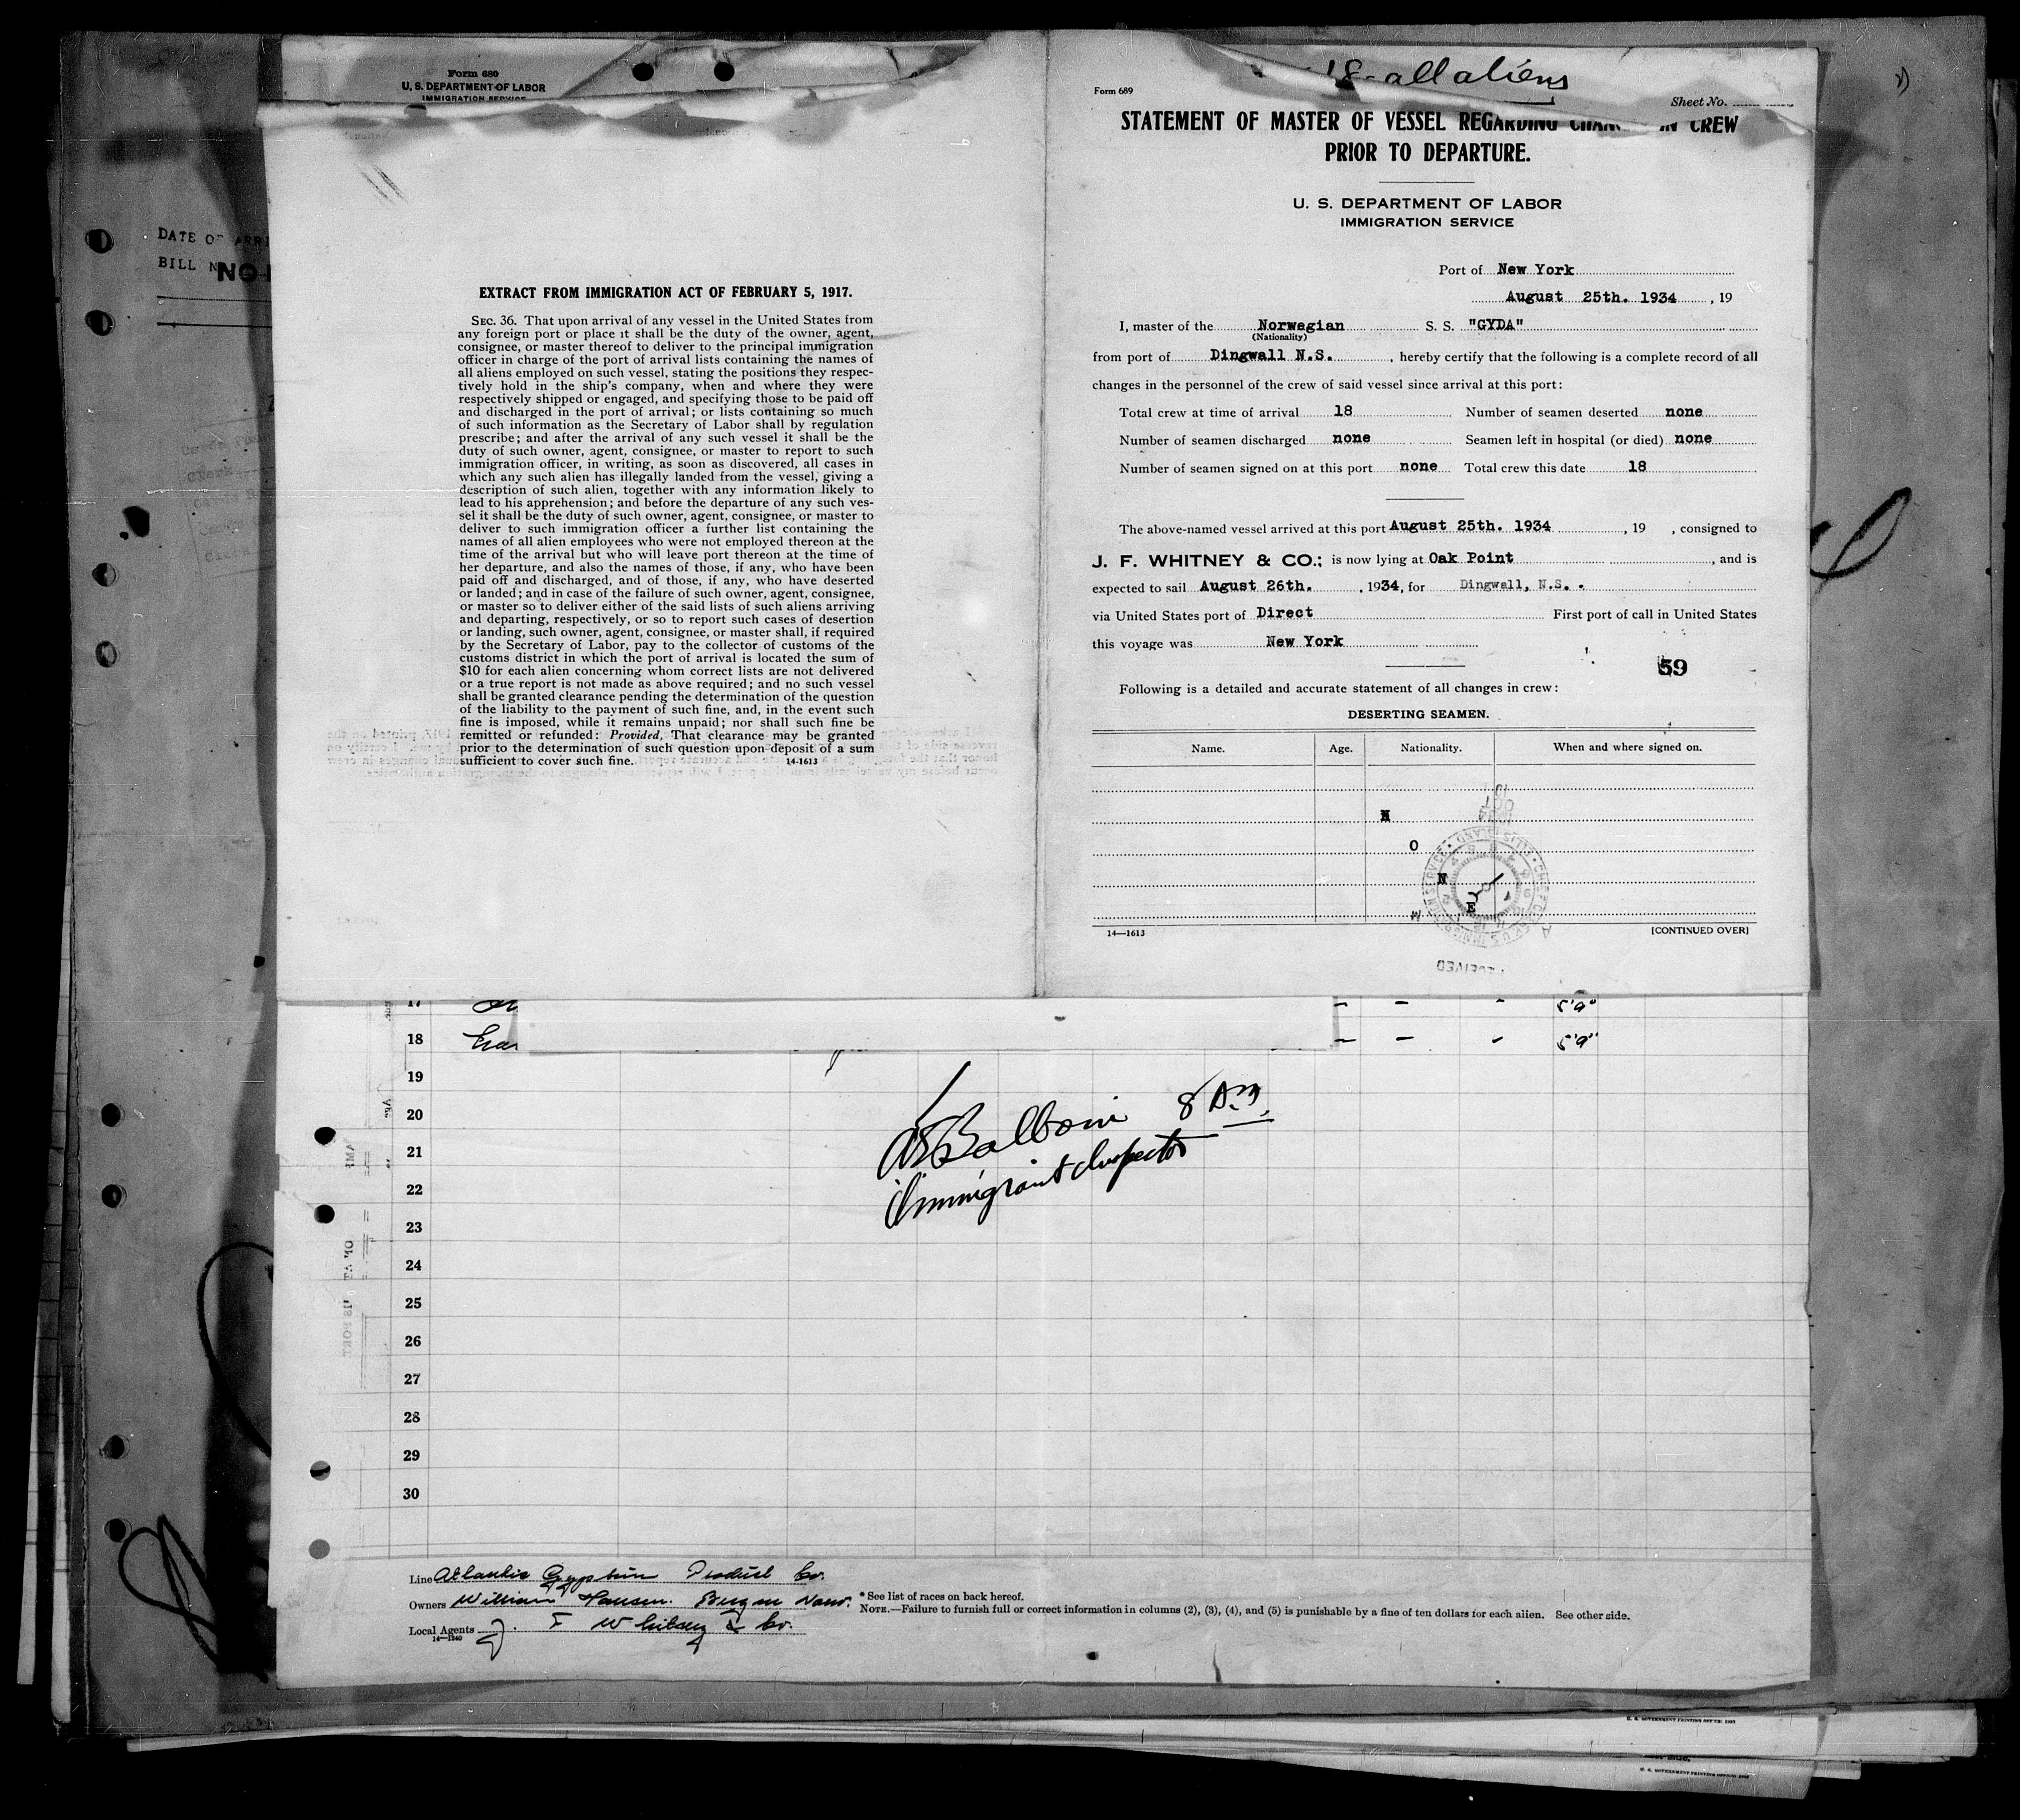 Form 680
U. S. DEPARTMENT OF LABOR
IMMIGRATION SERVICE
DATE OF ARRI
BILL N
NO
EXTRACT FROM IMMIGRATION ACT OF FEBRUARY 5, 1917.
SEC. 36. That upon arrival of any vessel in the United States from
any foreign port or place it shall be the duty of the owner, agent,
consignee, or master thereof to deliver to the principal immigration
officer in charge of the port of arrival lists containing the names of
all aliens employed on such vessel, stating the positions they respec-
tively hold in the ship's company, when and where they were
respectively shipped or engaged, and specifying those to be paid off
and discharged in the port of arrival; or lists containing so much
of such information as the Secretary of Labor shall by regulation
prescribe; and after the arrival of any such vessel it shall be the
duty of such owner, agent, consignee, or master to report to such
immigration officer, in writing, as soon as discovered, all cases in
which any such alien has illegally landed from the vessel, giving a
description of such alien, together with any information likely to
lead to his apprehension; and before the departure of any such ves-
sel it shall be the duty of such owner, agent, consignee, or master to
deliver to such immigration officer a further list containing the
names of all alien employees who were not employed thereon at the
time of the arrival but who will leave port thereon at the time of
her departure, and also the names of those, if any, who have been
paid off and discharged, and of those, if any, who have deserted
or landed; and in case of the failure of such owner, agent, consignee,
or master so to deliver either of the said lists of such aliens arriving
and departing, respectively, or so to report such cases of desertion
or landing, such owner, agent, consignee, or master shall, if required
by the Secretary of Labor, pay to the collector of customs of the
customs district in which the port of arrival is located the sum of
$10 for each alien concerning whom correct lists are not delivered
or a true report is not made as above required; and no such vessel
shall be granted clearance pending the determination of the question
of the liability to the payment of such fine, and, in the event such
fine is imposed, while it remains unpaid; nor shall such fine be
remitted or refunded: Provided, That clearance may be granted
prior to the determination of such question upon deposit of a sum
sufficient to cover such fine. 14-1613
18-all aliens
Form 689
Sheet No.
STATEMENT OF MASTER OF VESSEL REGARDING CHAN IN CREW
PRIOR TO DEPARTURE.
U. S. DEPARTMENT OF LABOR
IMMIGRATION SERVICE
Port of New York
August 25th. 1934, 19
I, master of the Norwegian S. S. "GYDA"
(Nationality)
from port of Dingwall N.S., hereby certify that the following is a complete record of all
changes in the personnel of the crew of said vessel since arrival at this port:
Total crew at time of arrival 18 Number of seamen deserted none
Number of seamen discharged none Seamen left in hospital (or died) none
Number of seamen signed on at this port none Total crew this date 18
The above-named vessel arrived at this port August 25th. 1934, 19 , consigned to
J. F. WHITNEY & CO.; is now lying at Oak Point, and is
expected to sail August 26th., 1934, for Dingwall, N.S.
via United States port of Direct First port of call in United States
this voyage was New York
59
Following is a detailed and accurate statement of all changes in crew:
DESERTING SEAMEN.
Name. Age. Nationality. When and where signed on.
N
O
N
E
14—1613 [CONTINUED OVER]
17
18
19
20
21
22
23
24
25
26
27
28
29
30
8 A.M.
Immigrant Inspector
Line Atlantic Gypsum Product Co.
Owners William Hansen. Bergen Norw.
Local Agents J. F Whitney & Co.
14—1240
* See list of races on back hereof.
NOTE.—Failure to furnish full or correct information in columns (2), (3), (4), and (5) is punishable by a fine of ten dollars for each alien. See other side.